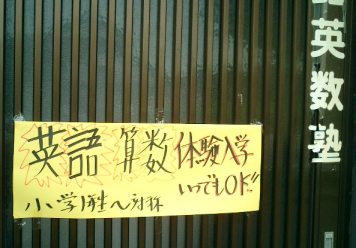 英数塾
英語 算数 体験入学
いつでもOK!!
小学1年生〜